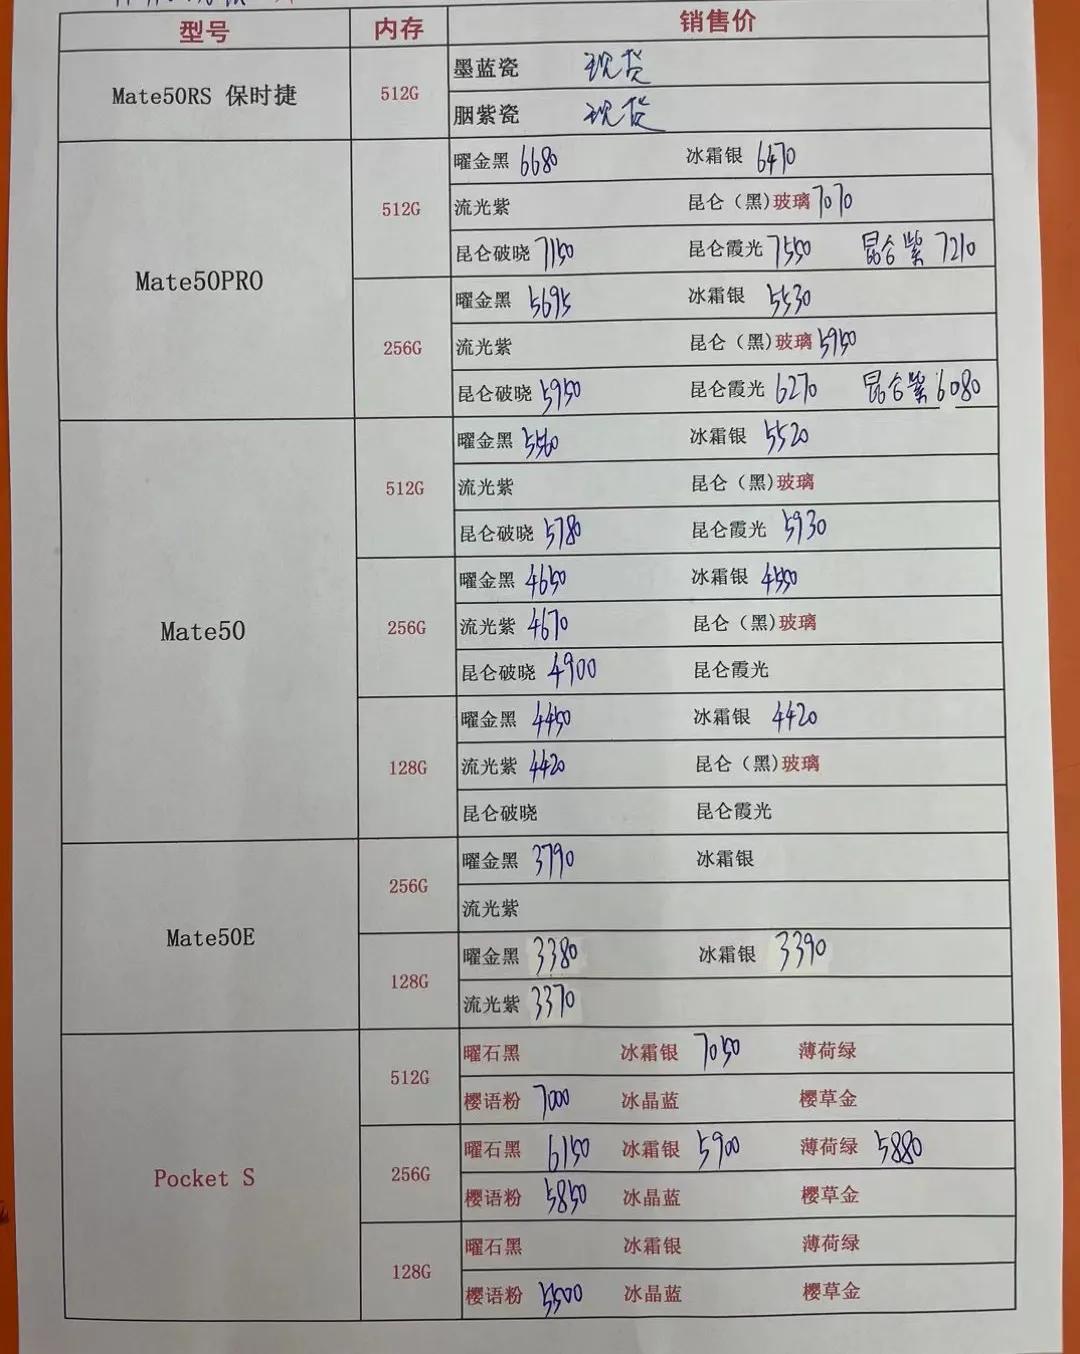 型号 内存 销售价
Mate50RS 保时捷 512G 墨蓝瓷 现货
胭紫瓷 现货
Mate50PRO 512G 曜金黑 6680 冰霜银 6470
流光紫 昆仑（黑)玻璃 7070
昆仑破晓 7150 昆仑霞光 7550 昆仑紫 7210
256G 曜金黑 5695 冰霜银 5530
流光紫 昆仑（黑)玻璃 5950
昆仑破晓 5950 昆仑霞光 6270 昆仑紫 6080
Mate50 512G 曜金黑 5560 冰霜银 5520
流光紫 昆仑（黑)玻璃
昆仑破晓 5780 昆仑霞光 5930
256G 曜金黑 4650 冰霜银 4550
流光紫 4670 昆仑（黑)玻璃
昆仑破晓 4900 昆仑霞光
128G 曜金黑 4450 冰霜银 4420
流光紫 4420 昆仑（黑)玻璃
昆仑破晓 昆仑霞光
Mate50E 256G 曜金黑 3790 冰霜银
流光紫
128G 曜金黑 3380 冰霜银 3390
流光紫 3370
Pocket S 512G 曜石黑 冰霜银 7050 薄荷绿
樱语粉 7000 冰晶蓝 樱草金
256G 曜石黑 6150 冰霜银 5900 薄荷绿 5880
樱语粉 5850 冰晶蓝 樱草金
128G 曜石黑 冰霜银 薄荷绿
樱语粉 5500 冰晶蓝 樱草金